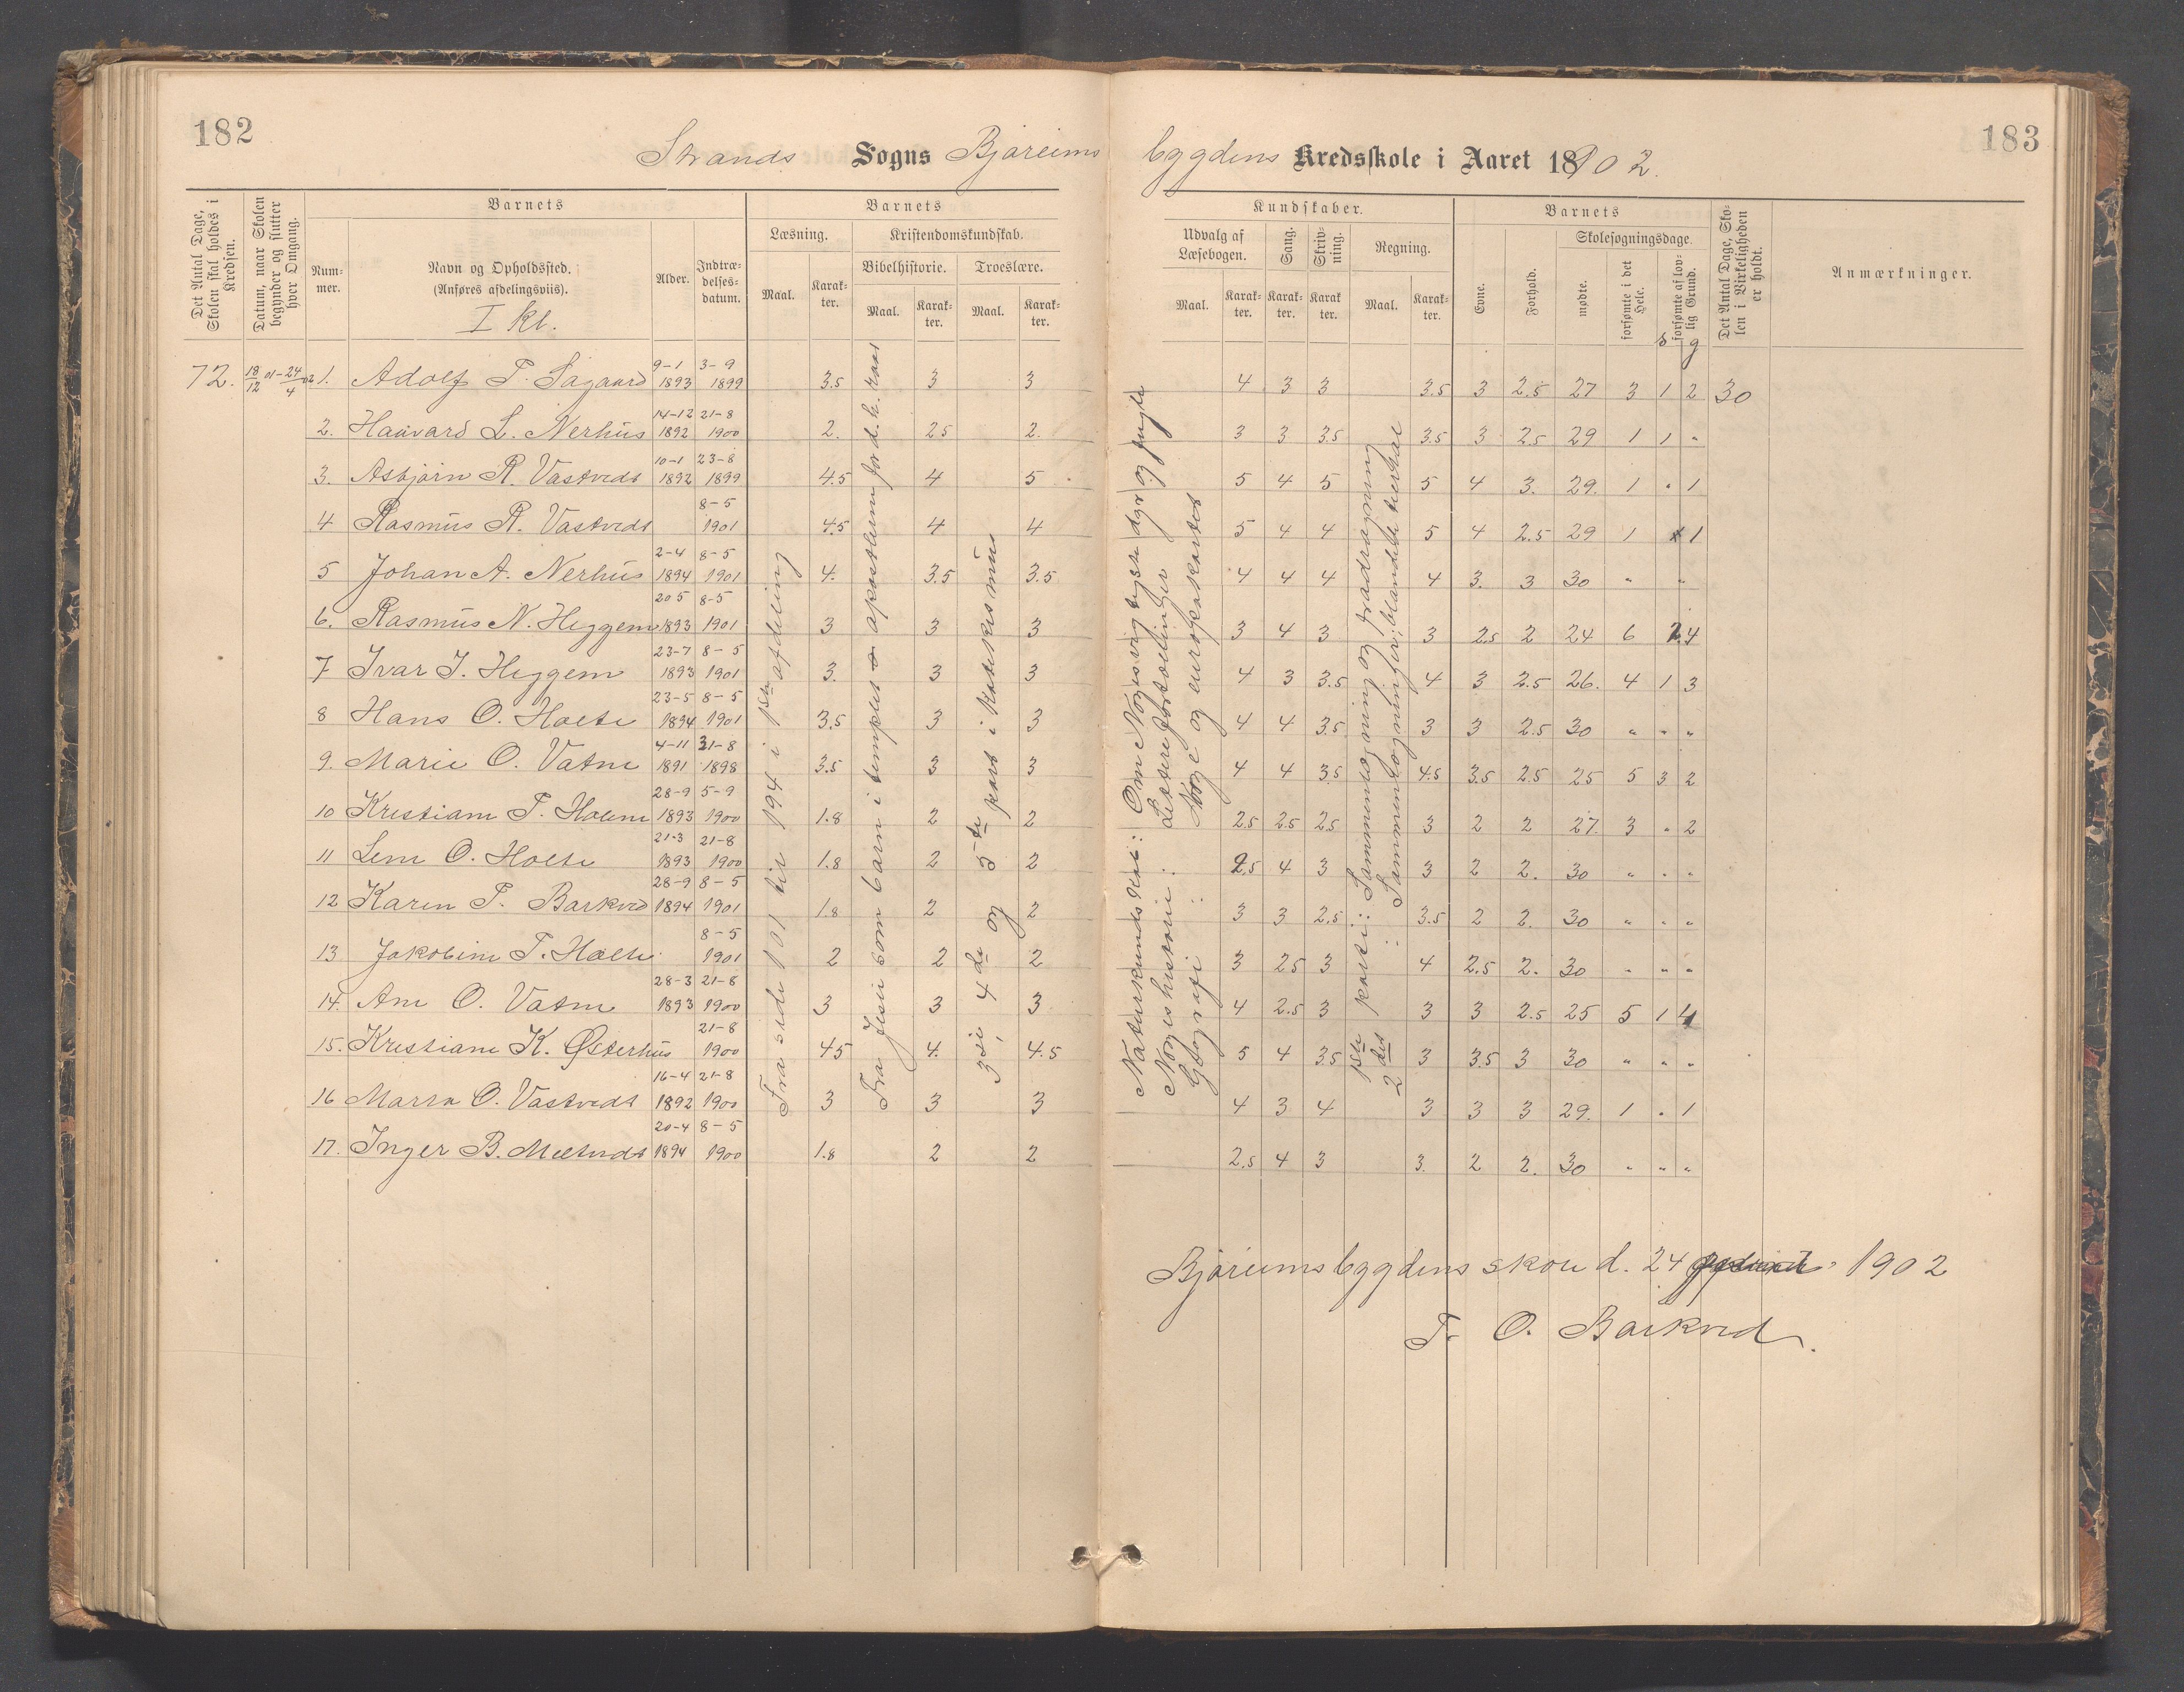 182
Strands Sogns Bjøreims
Det Antal Dage, Skolen skal holdes i Kredsen.
Datum, naar Skolen begynder og slutter hver Omgang.
Barnets
Num-mer.
Navn og Opholdssted.
(Anføres afdelingsviis).
I kl.
Alder.
Indtræ-delses-datum.
Barnets
Læsning.
Maal.
Karak-ter.
Kristendomskundskab.
Bibelhistorie.
Maal.
Karak-ter.
Troeslære.
Maal.
Karak-ter.
72. 18/12 01-24/4 02 1. Adolf T. Sagaard 9-1 1893 3-9 1899 3.5 3 3
2. Haavard L. Nerhus 14-12 1892 21-8 1900 2. 2.5 2.
3. Asbjørn R. Vastveds 10-1 1892 23-8 1899 4.5 4 5
4 Rasmus R. Vastveds 8-5 1901 4.5 4 4
5 Johan A. Nerhus 2-4 1894 8-5 1901 4. 3.5 3.5
6. Rasmus N. Heggem 20 5 1893 8-5 1901 3 3 3
7 Ivar J. Heggem 23-7 1893 8-5 1901 3. 3 3
8 Hans O. Holte 23-5 1894 8-5 1901 3.5 3 3
9. Marie O. Vatne 4-11 1891 21-8 1898 3.5 3 3
10 Kristiane T. Holem 28-9 1893 5-9 1900 1.8 2 2
11 Lene O. Holte 21-3 1893 21-8 1900 1.8 2 2
12 Karen T. Barkved 28-9 1894 8-5 1901 1.8 2 2
13 Jakobine T. Holte 8-5 1901 2 2 2
14. Ane O. Vatne 28-3 1893 21-8 1900 3 3 3
15. Kristiane K. Østerhus 21-8 1900 4.5 4. 4.5
16 Marta O. Vastveds 16-4 1892 21-8 1900 3 3 3
17. Inger B. Meltveds 20-4 1894 8-5 1900 1.8 2 2
Fra side 101 til 194 i 1ste afdeling
Fra Jesus som barn i templet apostlenes
3die, 4de og 5te part i katekismus
183
bygdens Kredsskole i Aaret 18902.
Kundskaber.
Udvalg af Læsebogen.
Maal.
Karak-ter.
Sang.
Karak-ter.
Skriv-ning.
Karak-ter.
Regning.
Maal.
Karak-ter.
Barnets
Evne.
Forhold.
Skolesøgningsdage.
mødte.
forsømte i det Hele.
forsømte af lov-lig Grund.
s g
Det Antal Dage, Sko-len i Virkeligheden er holdt.
Anmærkninger.
4 3 3 3.5 3 2.5 27 3 1 2 30
3 3 3.5 3.5 3 2.5 29 1 1 "
5 4 5 5 4 3. 29. 1 " 1
5 4 4 5 4 2.5 29 1 1
4 4 4 4 3. 3 30 " "
3 4 3 3 2.5 2 24 6 2 4
4 3 3.5 4 3 2.5 26. 4 1 3
4 4 3.5 3 3 2.5 30 " " "
4 4 3.5 4.5 3.5 2.5 25 5 3 2
2.5 2.5 2.5 3 2 2 27. 3 " 2
2.5 4 3 3 2 2. 30 " " "
3 3 2.5 3.5 2 2. 30 " " "
3 2.5 3 4 2.5 2. 30 " " "
4 2.5 3 3 3 2.5 25 5 1 4
5 4 3.5 3 3.5 3 30 " " "
4 3 4 3 3 3 29. 1 " 1
2.5 4 3 3. 2 2. 30 " " "
Naturkundskab: Om Norges vigtigste dyr og fugle
Norges historie: Lettere fortællinger
Geografi: Norge og europakartet
1ste parti: Sammenlægning og fradragning
2det : Sammenlægninger; blandede
Bjøreimsbygdens skole d. 24 1902
T. O. Barkved.